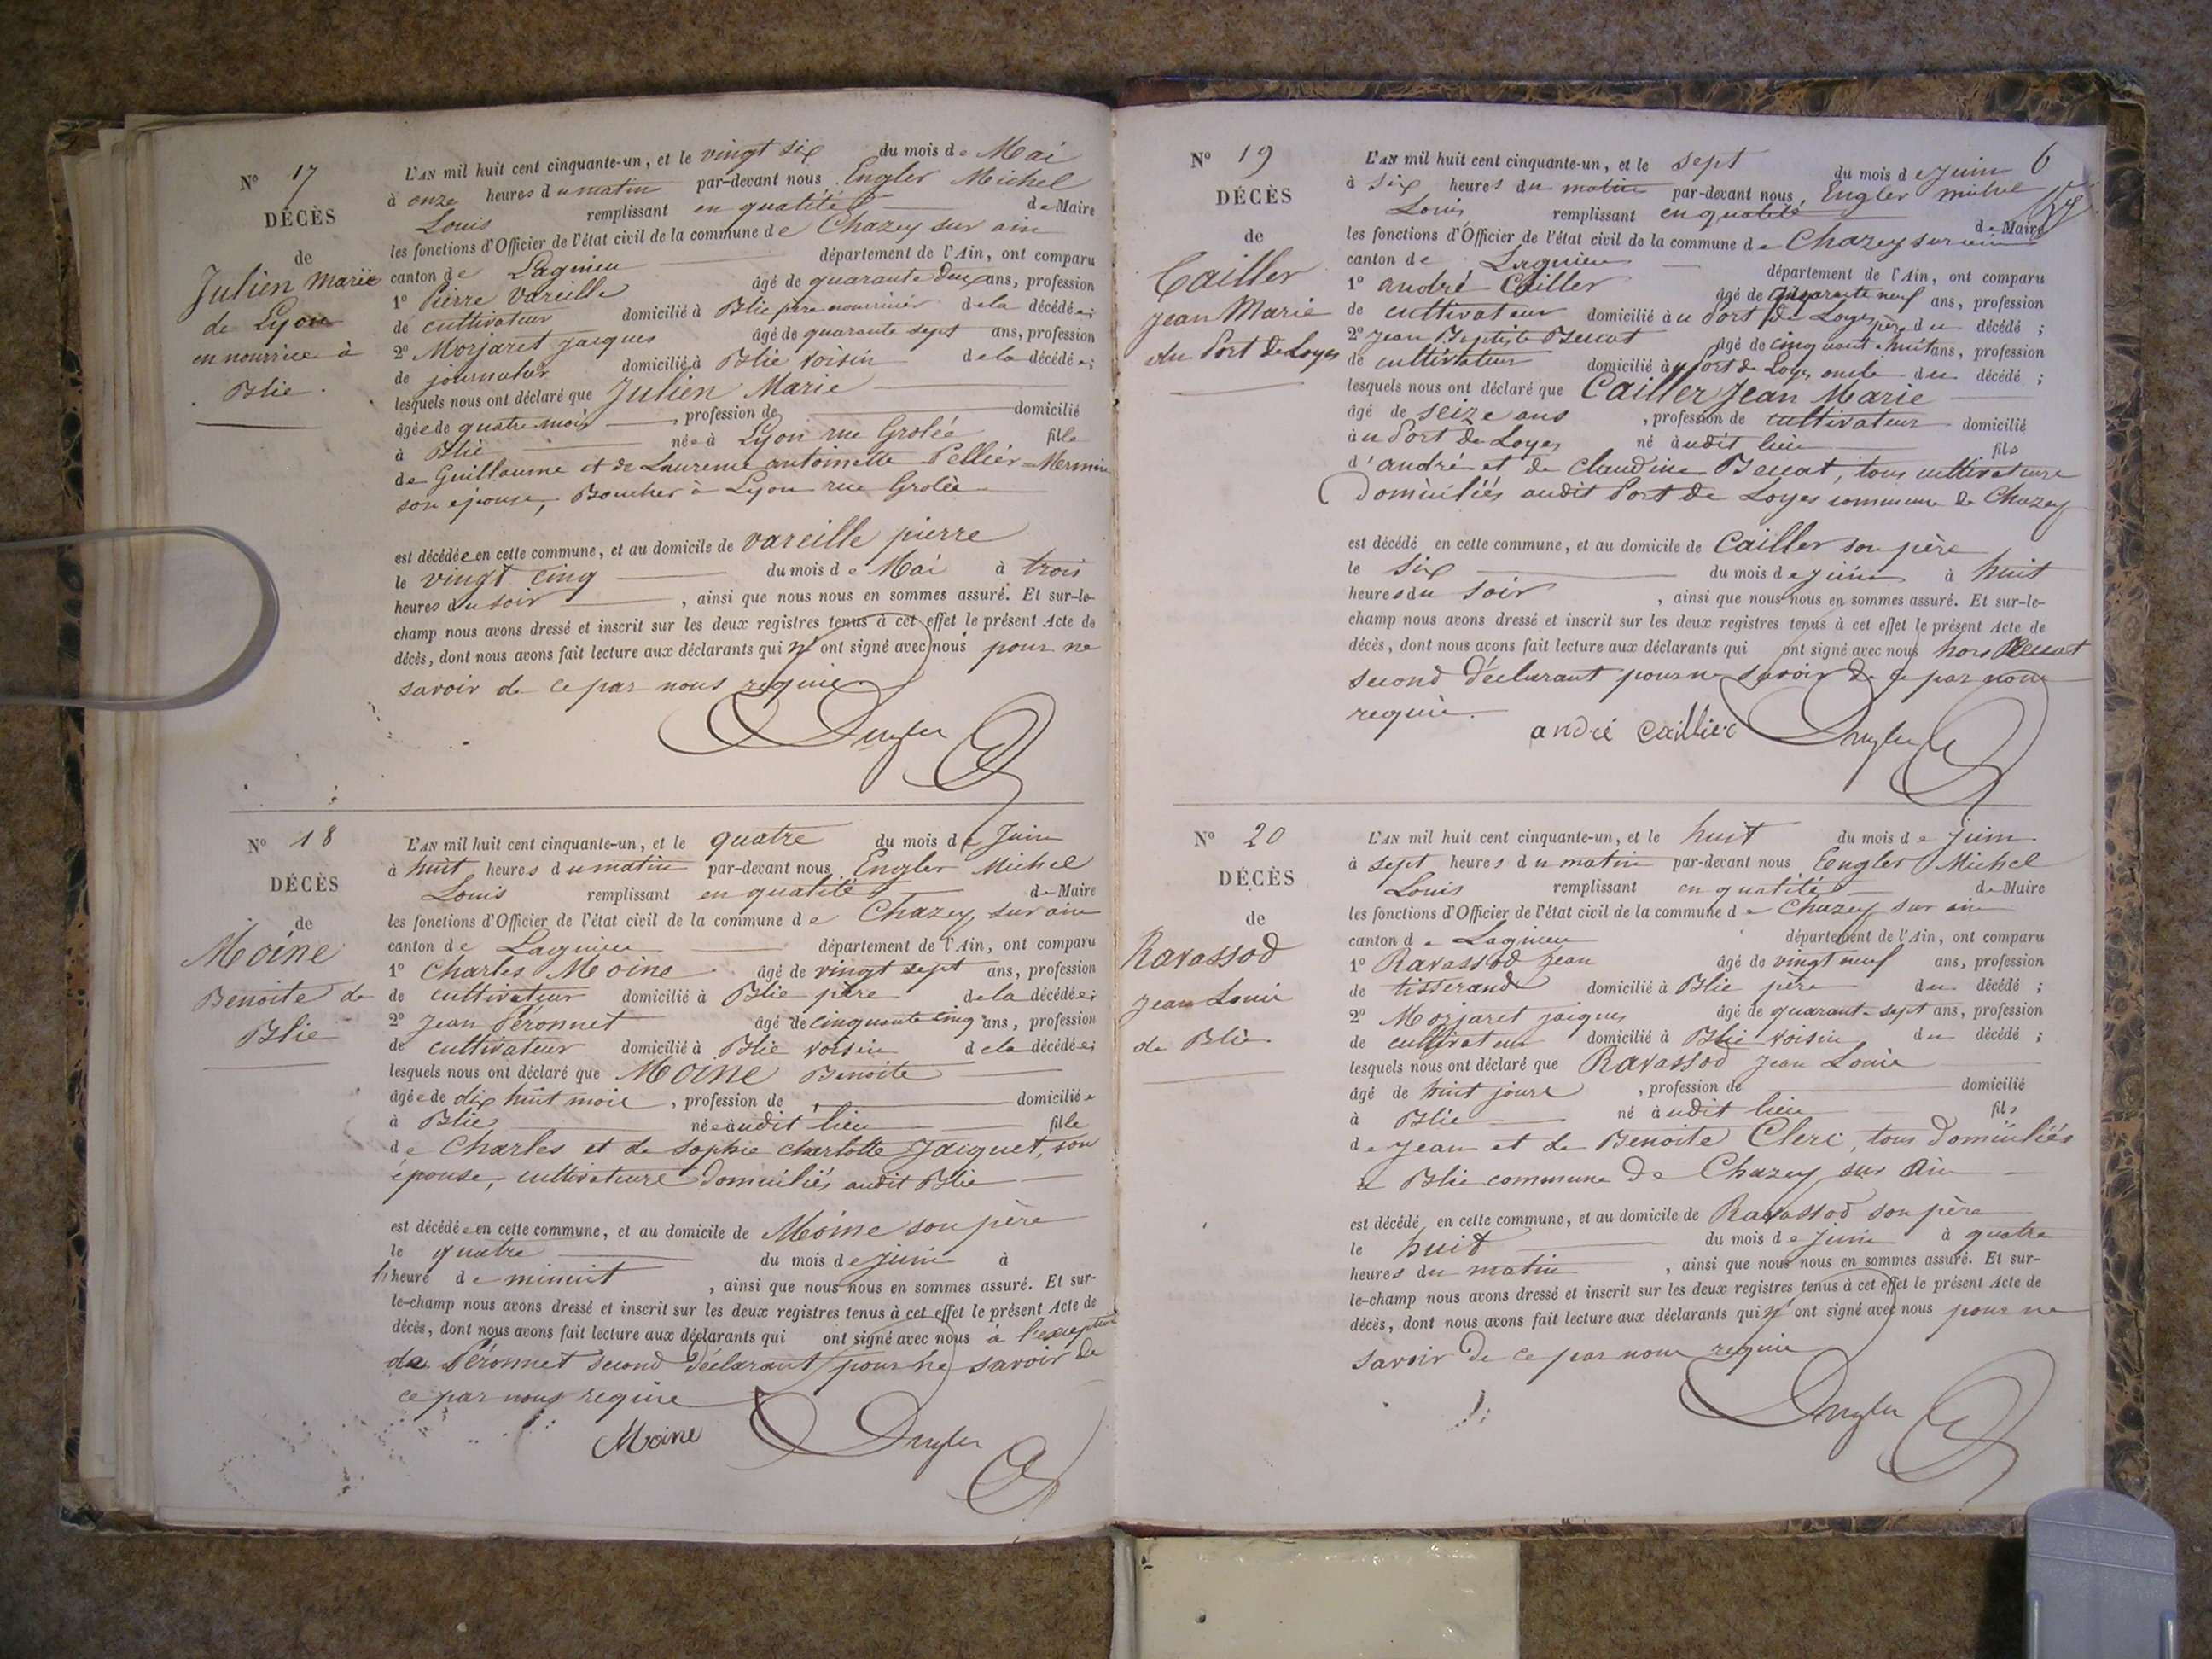 N° 17
DÉCÈS
de
Julien Marie
de Lyon
en nourrice à
Blie.
L'AN mil huit cent cinquante-un, et le vingt six du mois de Mai
à onze heures du matin par-devant nous Engler Michel
Louis remplissant en qualité de Maire
les fonctions d'Officier de l'état civil de la commune de Chazey sur ain
canton de Lagnieu département de l'Ain, ont comparu
1° Pierre Vareille âgé de quarante deux ans, profession
de cultivateur domicilié à Blie père nourricier de la décédée;
2° Morjaret jacques âgé de quarante sept ans, profession
de journalier domicilié à Blie voisin de la décédée;
lesquels nous ont déclaré que Julien Marie
âgée de quatre mois, profession de domicilié
à Blie née à Lyon rue Grolée fille
de Guillaume et de Laurence antoinette Pellier Mermin
son épouse, Boucher à Lyon rue Grolée
est décédée en cette commune, et au domicile de vareille pierre
le vingt cinq du mois de Mai à trois
heures du soir, ainsi que nous nous en sommes assuré. Et sur-le-
champ nous avons dressé et inscrit sur les deux registres tenus à cet effet le présent Acte de
décès, dont nous avons fait lecture aux déclarants qui n'ont signé avec nous pour ne
savoir de ce par nous requis
Engler
N° 18
DÉCÈS
de
Moine
Benoite de
Blie
L'AN mil huit cent cinquante-un, et le quatre du mois de Juin
à huit heures du matin par-devant nous Engler Michel
Louis remplissant en qualité de Maire
les fonctions d'Officier de l'état civil de la commune de Chazey sur ain
canton de Lagnieu département de l'Ain, ont comparu
1° Charles Moine âgé de vingt sept ans, profession
de cultivateur domicilié à Blie père de la décédée;
2° Jean Péronnet âgé de cinquante cinq ans, profession
de cultivateur domicilié à Blie voisin de la décédée;
lesquels nous ont déclaré que Moine Benoite
âgée de dix huit mois, profession de domiciliée
à Blie née audit lieu fille
de Charles et de Sophie charlotte Jacquet, son
épouse, cultivateurs domiciliés audit Blie
est décédée en cette commune, et au domicile de Moine son père
le quatre du mois de juin à
heure de minuit, ainsi que nous nous en sommes assuré. Et sur-
le-champ nous avons dressé et inscrit sur les deux registres tenus à cet effet le présent Acte de
décès, dont nous avons fait lecture aux déclarants qui ont signé avec nous à l'exception
de Péronnet second déclarant pour ne savoir de
ce par nous requis
Moine Engler
6
N° 19
DÉCÈS
de
Cailler
jean Marie
du Port de Loyes
L'AN mil huit cent cinquante-un, et le sept du mois de Juin
à six heures du matin par-devant nous, Engler michel
Louis remplissant en qualité de Maire
les fonctions d'Officier de l'état civil de la commune de Chazey sur ain
canton de Lagnieu département de l'Ain, ont comparu
1° andré Cailler âgé de quarante neuf ans, profession
de cultivateur domicilié au Port de Loyes père du décédé;
2° jean Baptiste âgé de cinquante huit ans, profession
de cultivateur domicilié au Port de Loyes oncle du décédé;
lesquels nous ont déclaré que Cailler Jean Marie
âgé de seize ans, profession de cultivateur domicilié
au Port de Loyes né audit lieu fils
d'andré et de claudine, tous cultivateurs
domiciliés audit Port de Loyes commune de Chazey
est décédé en cette commune, et au domicile de Cailler son père
le six du mois de juin à huit
heures du soir, ainsi que nous nous en sommes assuré. Et sur-le-
champ nous avons dressé et inscrit sur les deux registres tenus à cet effet le présent Acte de
décès, dont nous avons fait lecture aux déclarants qui ont signé avec nous hors
second déclarant pour ne savoir de ce par nous
requis.
andré caillier Engler
N° 20
DÉCÈS
de
Ravassod
jean Louis
de Blie
L'AN mil huit cent cinquante-un, et le huit du mois de juin
à sept heures du matin par-devant nous Engler Michel
Louis remplissant en qualité de Maire
les fonctions d'Officier de l'état civil de la commune de Chazey sur ain
canton de Lagnieu département de l'Ain, ont comparu
1° Ravassod jean âgé de vingt neuf ans, profession
de tisserand domicilié à Blie père du décédé;
2° Morjaret jacques âgé de quarante sept ans, profession
de cultivateur domicilié à Blie voisin du décédé;
lesquels nous ont déclaré que Ravassod jean Louis
âgé de huit jours, profession de domicilié
à Blie né audit lieu fils
de jean et de Benoite Clerc, tous domiciliés
à Blie commune de Chazey sur Ain
est décédé en cette commune, et au domicile de Ravassod son père
le huit du mois de juin à quatre
heures du matin, ainsi que nous nous en sommes assuré. Et sur-
le-champ nous avons dressé et inscrit sur les deux registres tenus à cet effet le présent Acte de
décès, dont nous avons fait lecture aux déclarants qui n'ont signé avec nous pour ne
savoir de ce par nous requis
Engler